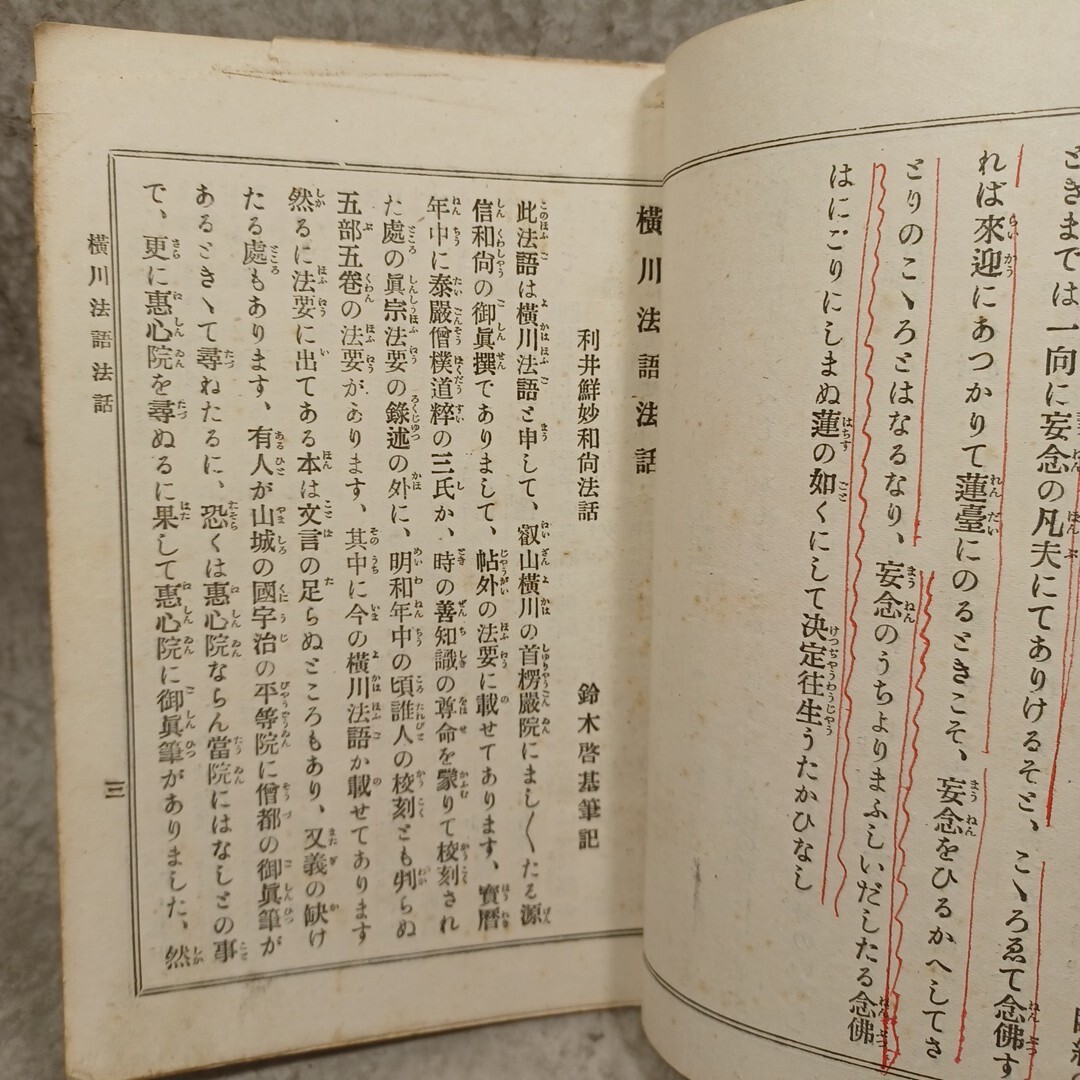 ときまでは一向に妄念の凡夫にてありけるそと、こゝろゑて念佛す
れば來迎にあつかりて蓮臺にのるときこそ、妄念をひるかへしてさ
とりのこゝろとはなるなり、妄念のうちよりまふしいだしたる念佛
はにごりにしまぬ蓮の如くにして決定往生うたかひなし
橫川法語法話
利井鮮妙和尙法話
鈴木啓基筆記
此法語は橫川法語と申して、叡山橫川の首楞嚴院にまし〱たる源
信和尙の御眞撰でありまして、帖外の法要に載せてあります、寶曆
年中に泰嚴僧樸道粹の三氏か、時の善知識の尊命を蒙りて校刻され
た處の眞宗法要の錄述の外に、明和年中の頃誰人の校刻とも判らぬ
五部五卷の法要があります、其中に今の橫川法語か載せてあります
然るに法要に出てある本は文言の足らぬところもあり、又義の缺け
たる處もあります、有人が山城の國宇治の平等院に僧都の御眞筆が
あるときゝて尋ねたるに、恐くは惠心院ならん當院にはなしとの事
で、更に惠心院を尋ぬるに果して惠心院に御眞筆がありました、然
橫川法語法話
三